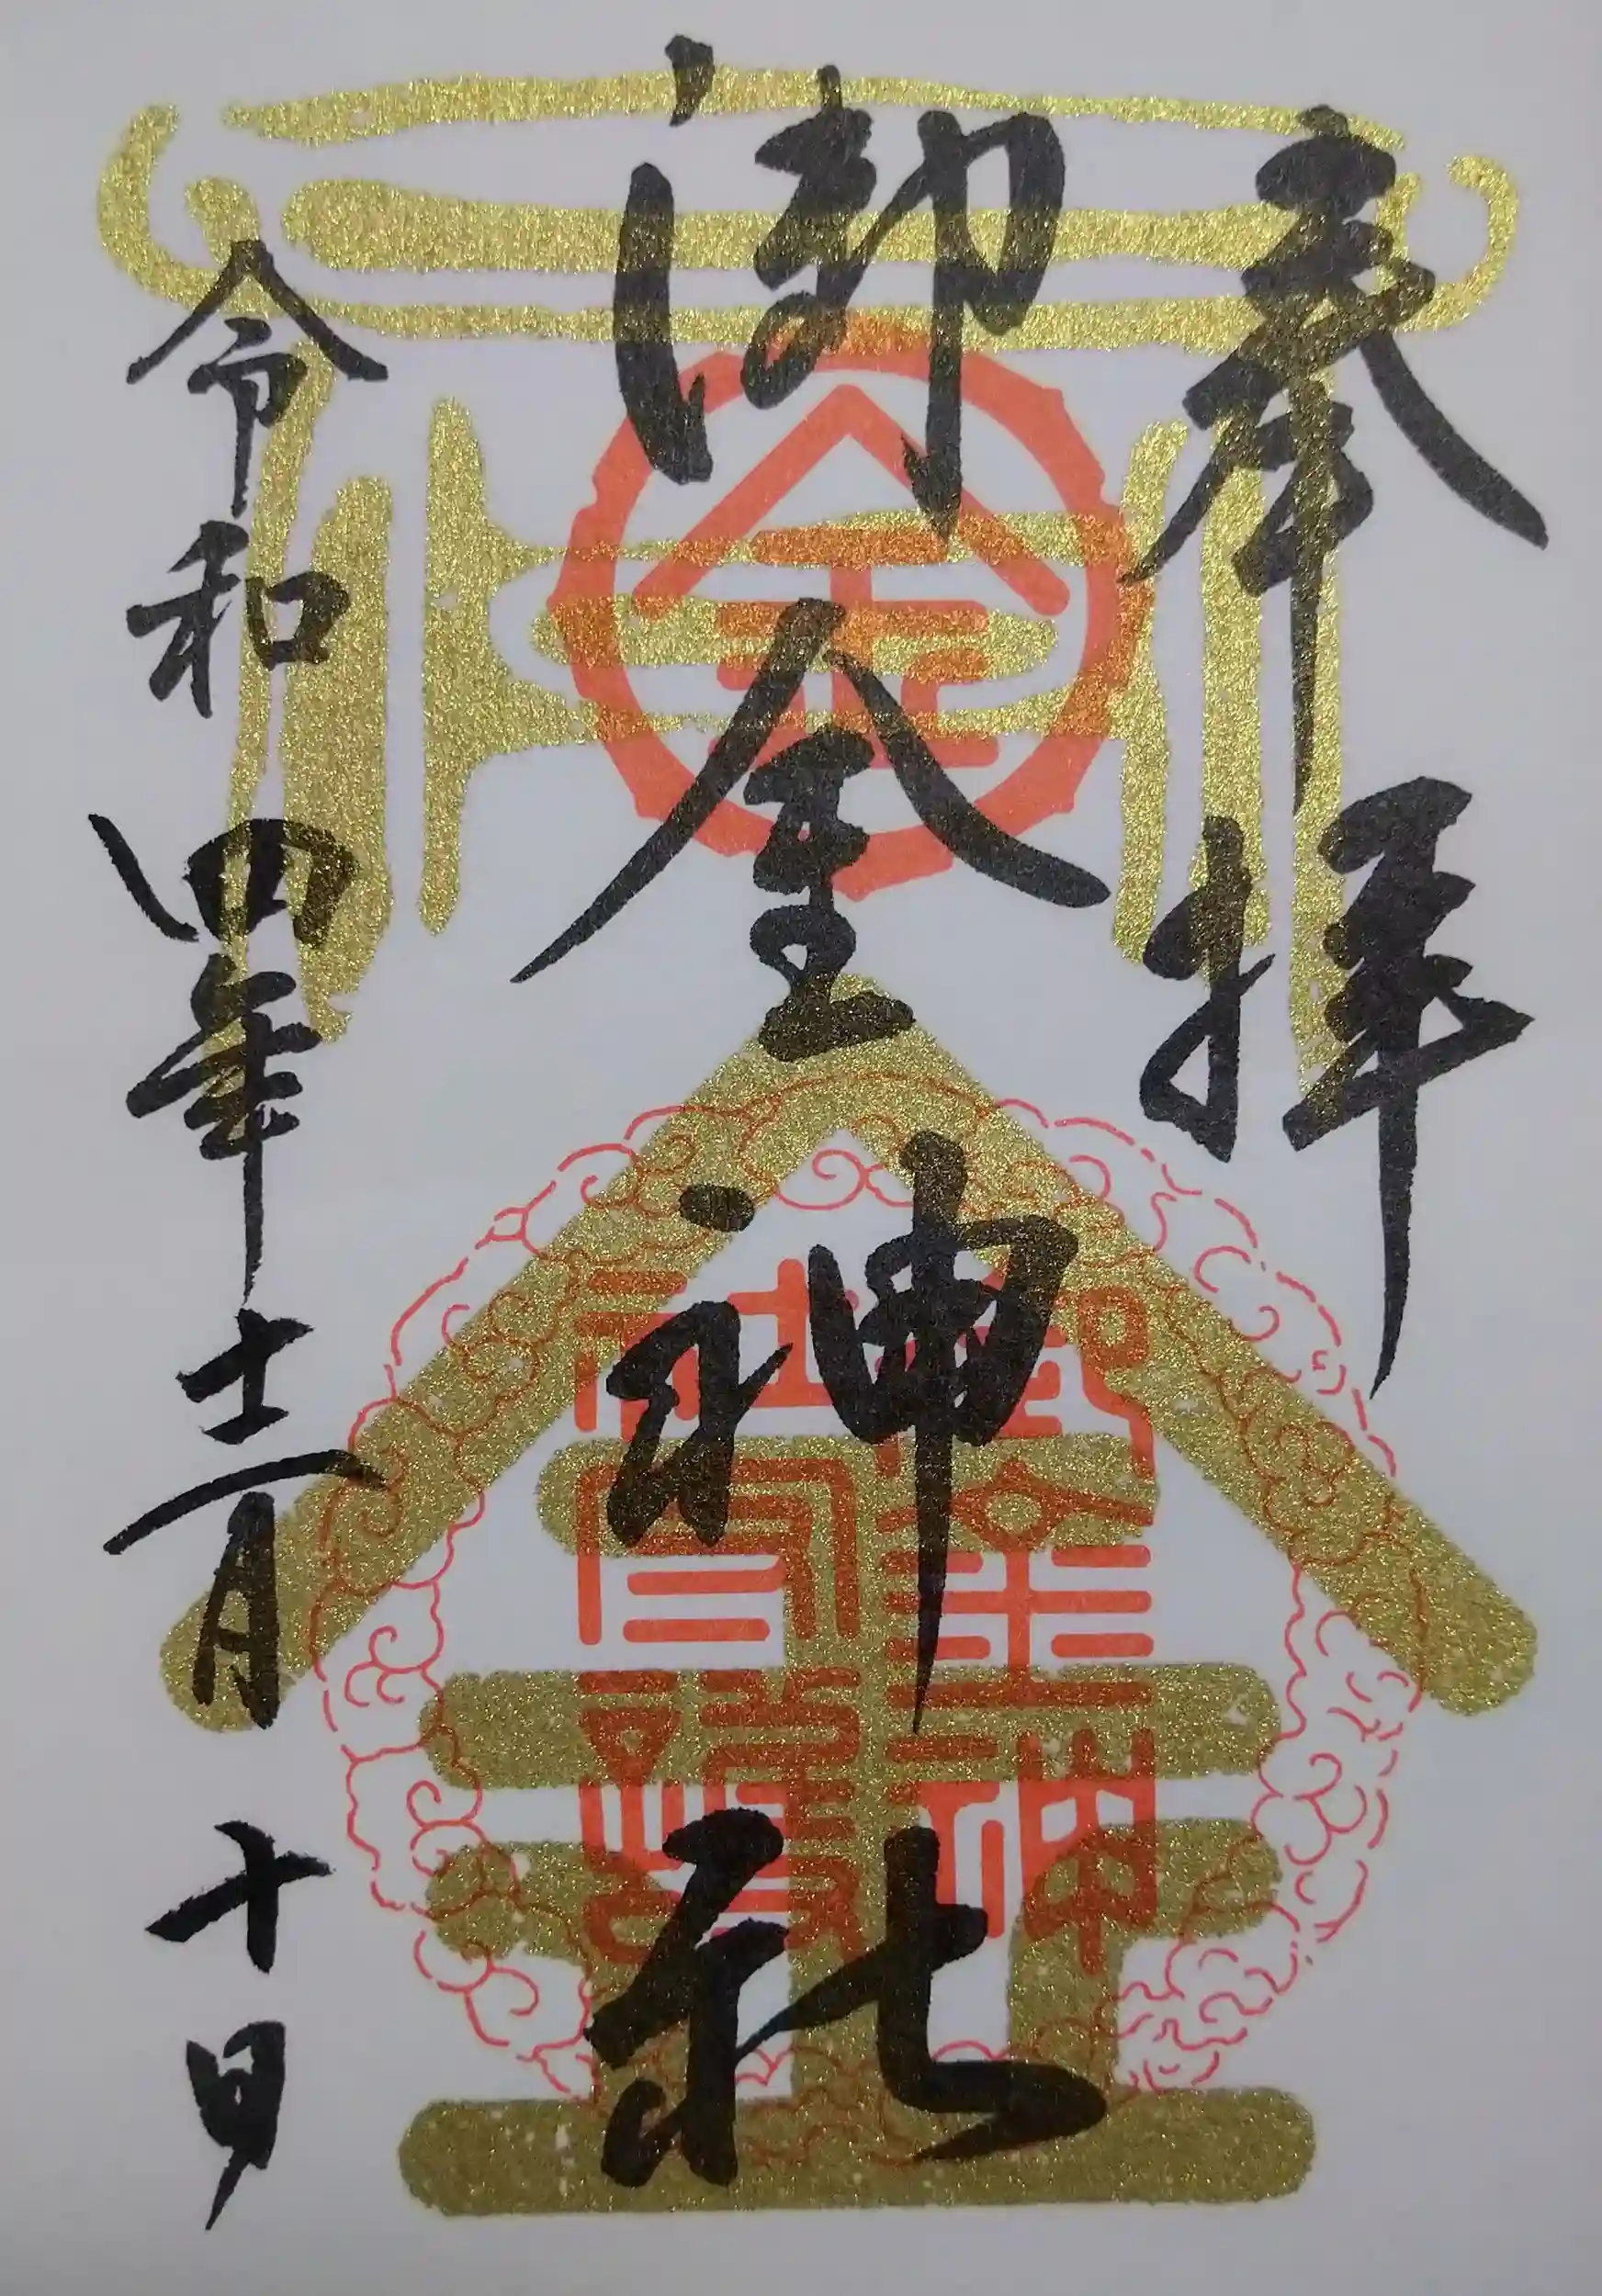 奉拝
御金神社
令和四年十二月十日
御金神
社